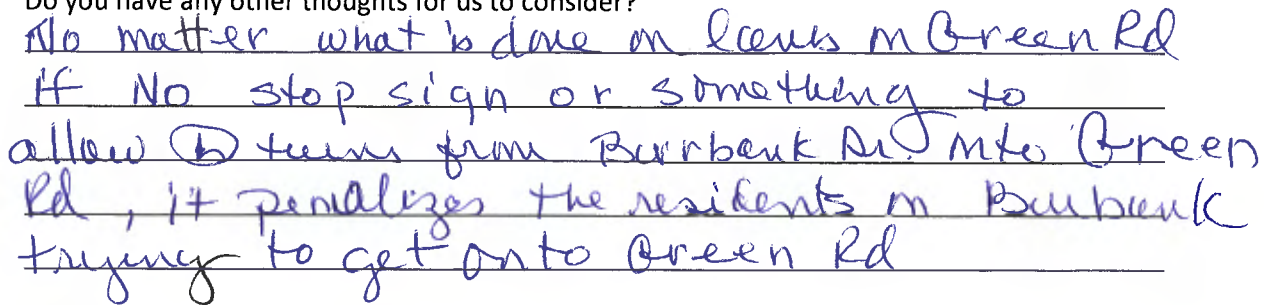 Do you have any other thoughts for us to consider?
No matter what is done on on Green Rd
if No stop sign or something to
allow turns from Burbank Dr. onto Green
Rd, it penalizes the residents on Burbank
trying to get onto Green Rd